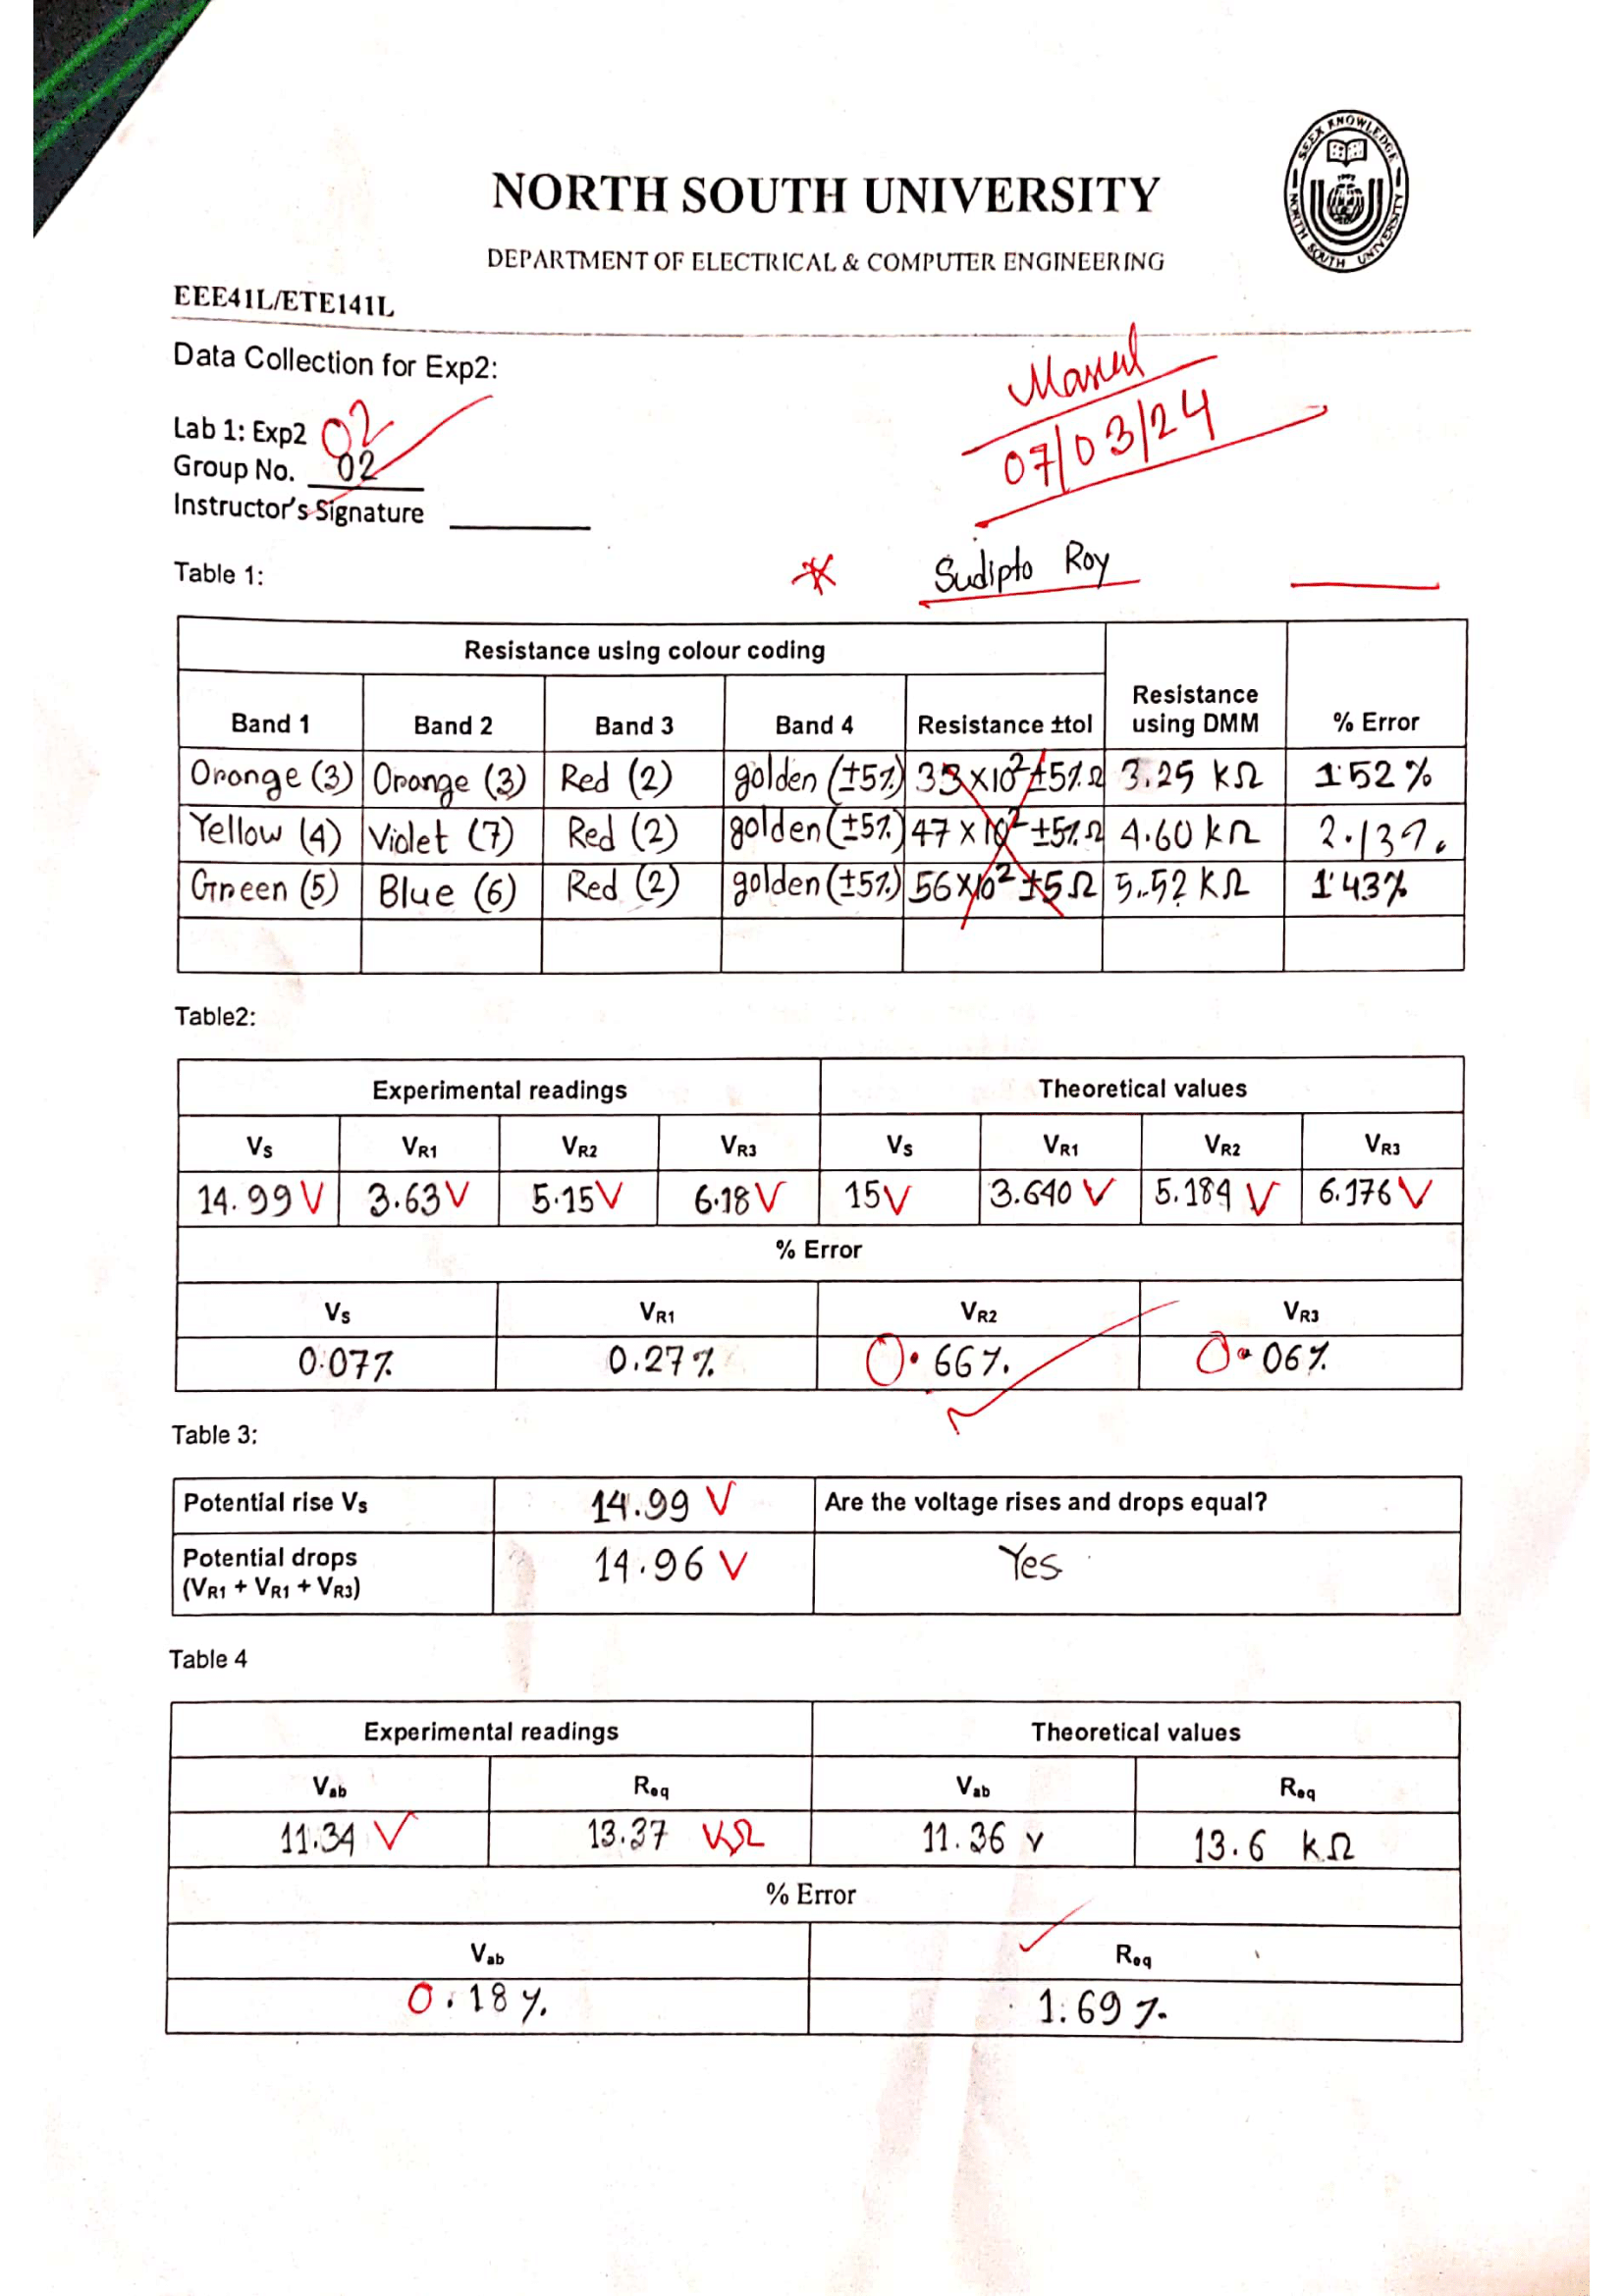 SEEK KNOWLEDGE
NORTH SOUTH UNIVERSITY
NORTH SOUTH UNIVERSITY
DEPARTMENT OF ELECTRICAL & COMPUTER ENGINEERING
EEE41L/ETE141L
Data Collection for Exp2:
07/03/24
Lab 1: Exp2 02
Group No. 02
Instructor's Signature
Table 1: * Sudipto Roy
Resistance using colour coding
Band 1 Band 2 Band 3 Band 4 Resistance ±tol Resistance using DMM % Error
Orange (3) Orange (3) Red (2) golden (±5%) 33×10² ±5% Ω 3.25 kΩ 1.52 %
Yellow (4) Violet (7) Red (2) golden (±5%) 47 × 10² ±5% Ω 4.60 kΩ 2.13%
Green (5) Blue (6) Red (2) golden (±5%) 56×10² ±5 Ω 5.52 kΩ 1.43%
Table2:
Experimental readings Theoretical values
VS VR1 VR2 VR3 VS VR1 VR2 VR3
14.99 V 3.63 V 5.15 V 6.18 V 15 V 3.640 V 5.184 V 6.176 V
% Error
VS VR1 VR2 VR3
0.07% 0.27% 0.66% 0.06%
Table 3:
Potential rise VS 14.99 V Are the voltage rises and drops equal?
Potential drops (VR1 + VR1 + VR3) 14.96 V Yes
Table 4
Experimental readings Theoretical values
Vab Req Vab Req
11.34 V 13.37 KΩ 11.36 V 13.6 kΩ
% Error
Vab Req
0.18% 1.69%